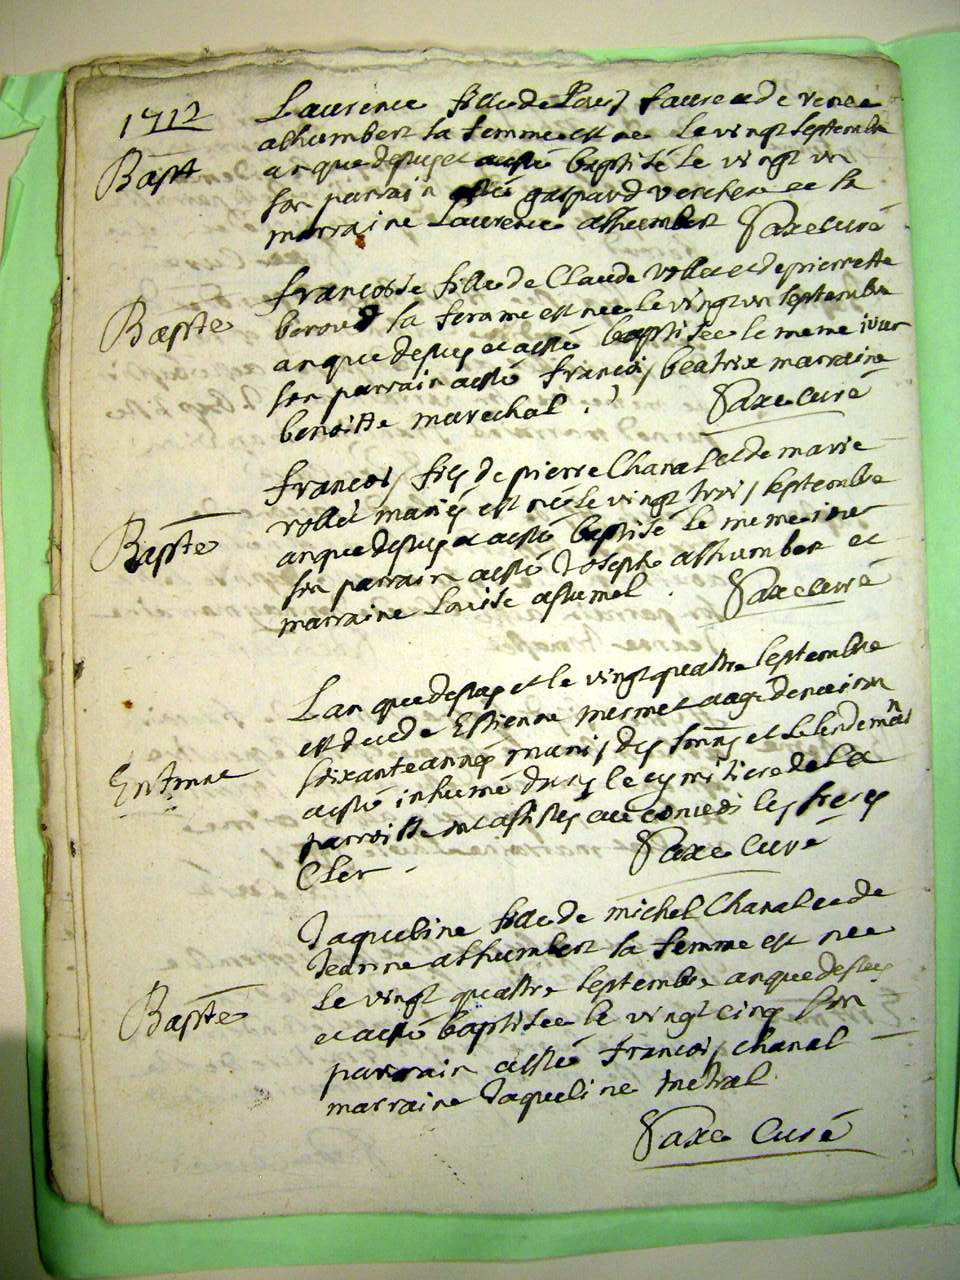 1712
Bapt
Laurence fille de Louis faure et de
alhumbert sa femme est nee le vingt septembre
an que desus et a esté baptisé le vingt un
son parrain a esté gaspard vercher et sa
marraine Laurence alhumbert Saxe curé
Baptte
francoise fille de Claude vollet et de pierrette
sa femme est nee le vingt un septembre
an que desus et a esté baptisee le meme iour
son parrain a esté francois beatrix marraine
benoitte marechal . Saxe curé
Baptte
francois fils de pierre Chanal et de marie
rollet mariés est né le vingt trois septembre
an que desus et a esté baptisé le meme iour
son parrain a esté Joseph alhumbert et
marraine Louise . Saxe curé
Lan que desus et le vingt quattre septembre
est decede Estienne mermet aagé denuiron
soixante annés munis des et le lendemain
a esté inhumé dans le cymitiere de la
parroisse ont assistes au conuois les freres
Cler - Saxe Curé
Baptte
Jaqueline fille de michel Chanal et de
Jeanne alhumbert sa femme est nee
le vingt quattre septembre an que desus
et a esté baptisee le vingt cinq son
parrain a esté francois chanal
marraine Jaqueline metral
Saxe Curé